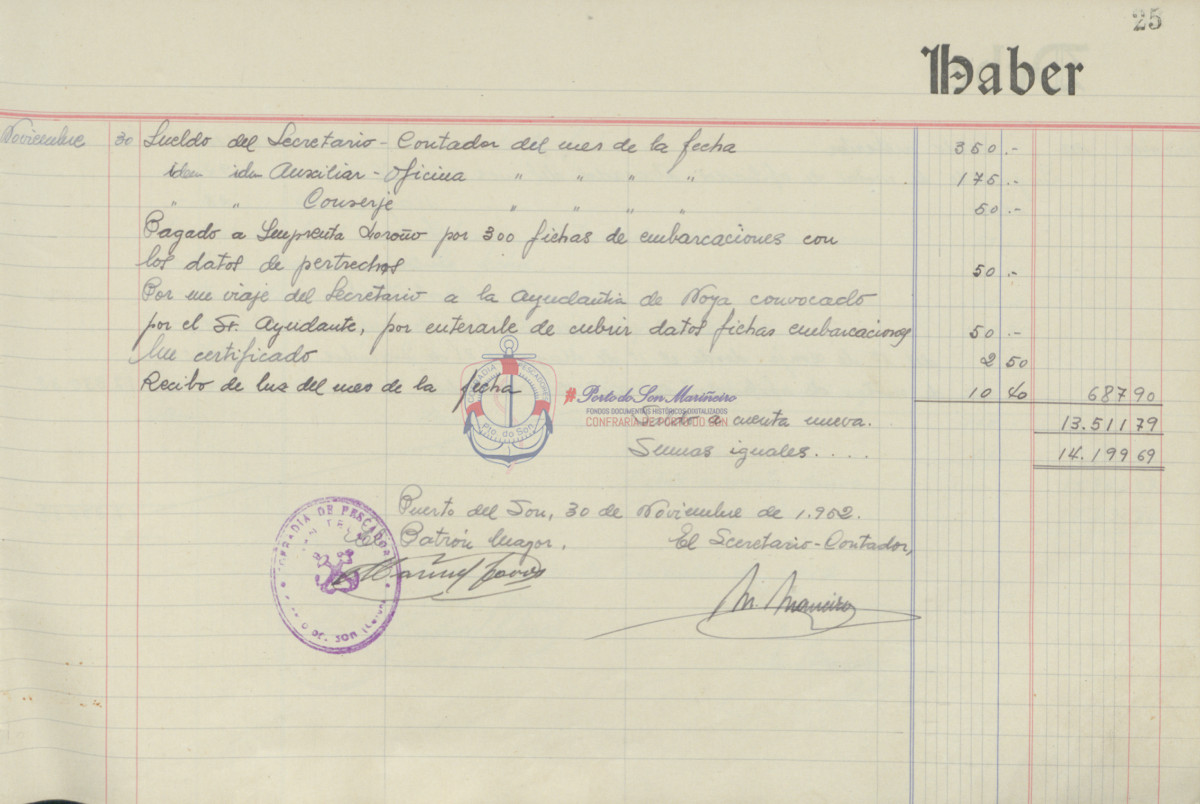 25
Haber
Noviembre 30 Sueldo del Secretario-Contador del mes de la fecha 350.-
idem idm Auxiliar-Oficina " " " " 175.-
" " Conserje " " " " 50.-
Pagado a Imprenta Noroño por 300 fichas de embarcaciones con
los datos de pertrechos 50.-
Por un viaje del Secretario a la Ayudantia de Noya convocado
por el Sr. Ayudante, por enterarle de cubrir datos fichas embarcaciones 50.-
Un certificado 2 50
Recibo de luz del mes de la fecha 10 40 687 90
Saldo a cuenta nueva. 13.511 79
Sumas iguales.... 14.199 69
COFRADIA PESCADORES
Pto. do Son
#Porto do Son Mariñeiro
FONDOS DOCUMENTAIS HISTÓRICOS DIXITALIZADOS
CONFRARÍA DE PORTO DO SON
Puerto del Son, 30 de Noviembre de 1.952.
El Patrón Mayor, El Secretario-Contador,
M. Maneiro
COFRADIA DE PESCADORES
DEL SON